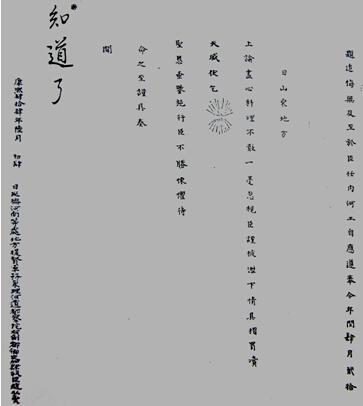 觀遠悔無及至於臣任內河工自應遵奉今年閏肆月貳拾
日山東地方
上諭盡心料理不敢一毫忽視臣謹披瀝下情具摺冒瀆
天威伏乞
聖恩垂鑒施行臣不勝悚懼待
命之至謹具奏
聞
知道了
康熙肆拾肆年陸月 初肆
日總河南等處地方提督軍